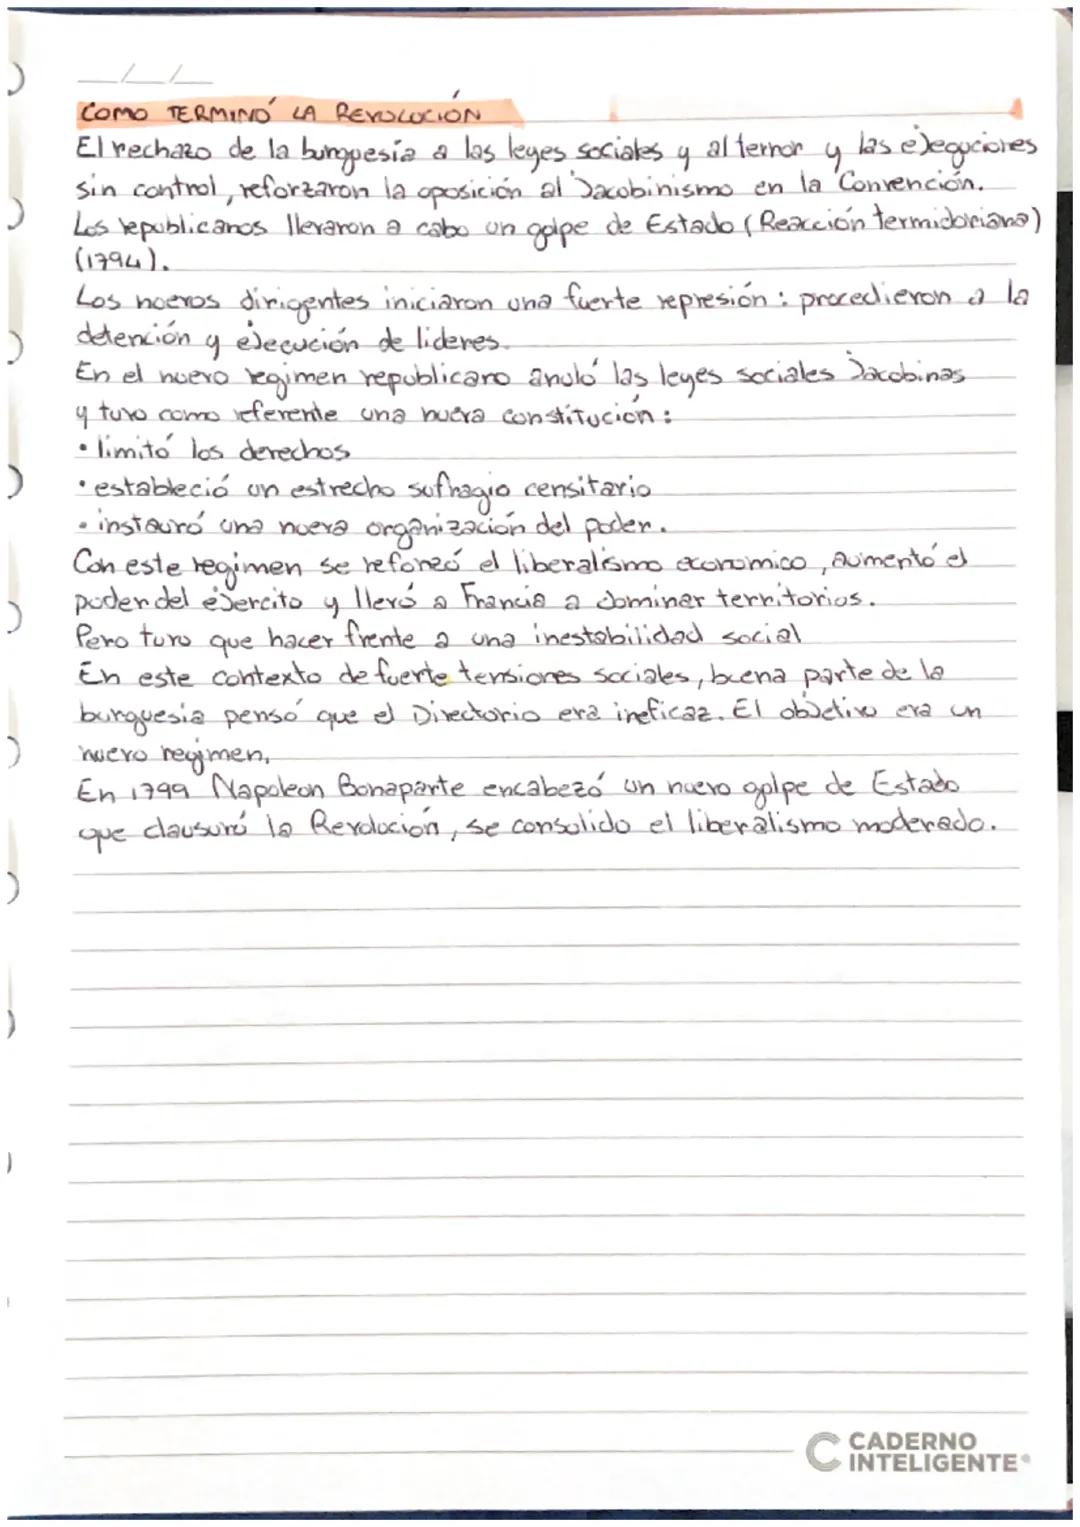 __/__/__
COMO TERMINÓ LA REVOLUCIÓN
El rechazo de la burguesía a las leyes sociales y al terror y las ejecuciones
sin control, reforzaron la oposición al Jacobinismo en la Convención.
Los republicanos llevaron a cabo un golpe de Estado (Reacción termidoriana)
(1794).
Los nuevos dirigentes iniciaron una fuerte represión: procedieron a la
detención y ejecución de lideres.
En el nuevo regimen republicano anuló las leyes sociales Jacobinas
y tuvo como referente una nueva constitución:
• limitó los derechos
• estableció un estrecho sufragio censitario
• instauró una nueva organización del poder.
Con este regimen se reforzó el liberalismo economico, aumentó el
poder del ejercito y llevó a Francia a dominar territorios.
Pero tuvo que hacer frente a una inestabilidad social
En este contexto de fuerte tensiones sociales, buena parte de la
burguesia pensó que el Directorio era ineficaz. El objetivo era un
nuevo regimen.
En 1799 Napoleon Bonaparte encabezó un nuevo golpe de Estado
que clausuró la Revolución, se consolido el liberalismo moderado.
CADERNO
INTELIGENTE®